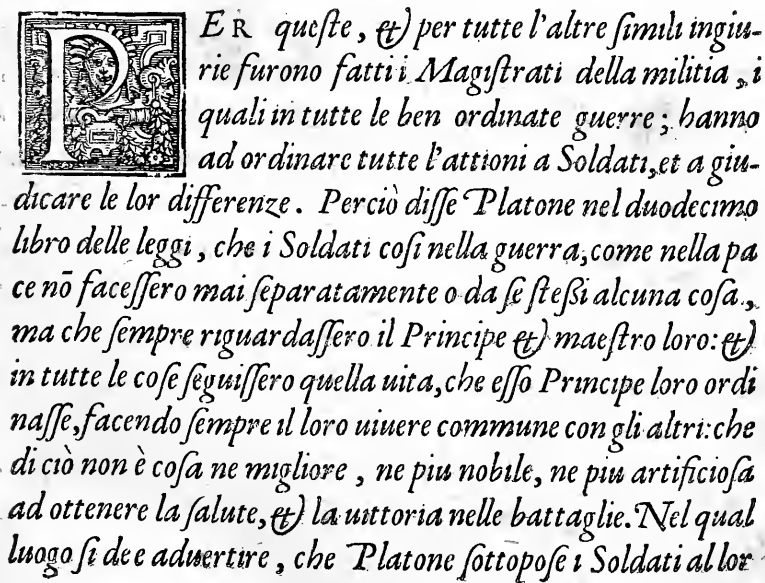 PER queſte, & per tutte l'altre ſimili ingiu-
rie furono fatti i Magiſtrati della militia, i
quali in tutte le ben ordinate guerre; hanno
ad ordinare tutte l'attioni a Soldati, et a giu-
dicare le lor differenze. Perciò diſſe Platone nel duodecimo
libro delle leggi, che i Soldati coſi nella guerra, come nella pa
ce nō faceſſero mai ſeparatamente o da ſe ſteßi alcuna coſa,
ma che ſempre riguardaſſero il Principe & maeſtro loro: &
in tutte le coſe ſeguiſſero quella uita, che eſſo Principe loro ordi
naſſe, facendo ſempre il loro uiuere commune con gli altri: che
di ciò non è coſa ne migliore, ne piu nobile, ne piu artificioſa
ad ottenere la ſalute, & la uittoria nelle battaglie. Nel qual
luogo ſi dee aduertire, che Platone ſottopoſe i Soldati al lor